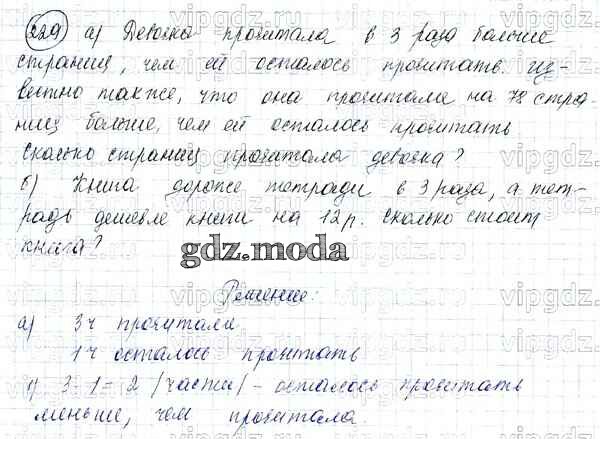 229 а) Девочка прочитала в 3 раза больше
страниц, чем ей осталось прочитать. Из-
вестно также, что она прочитала на 78 стра-
ниц больше, чем ей осталось прочитать
Сколько страниц прочитала девочка?
б) Книга дороже тетради в 3 раза, а тет-
радь дешевле книги на 12 р. Сколько стоит
книга?
gdz.moda
Решение:
а) 3ч прочитали
1ч осталось прочитать
1) 3-1=2 (части) - осталось прочитать
меньше, чем прочитала.